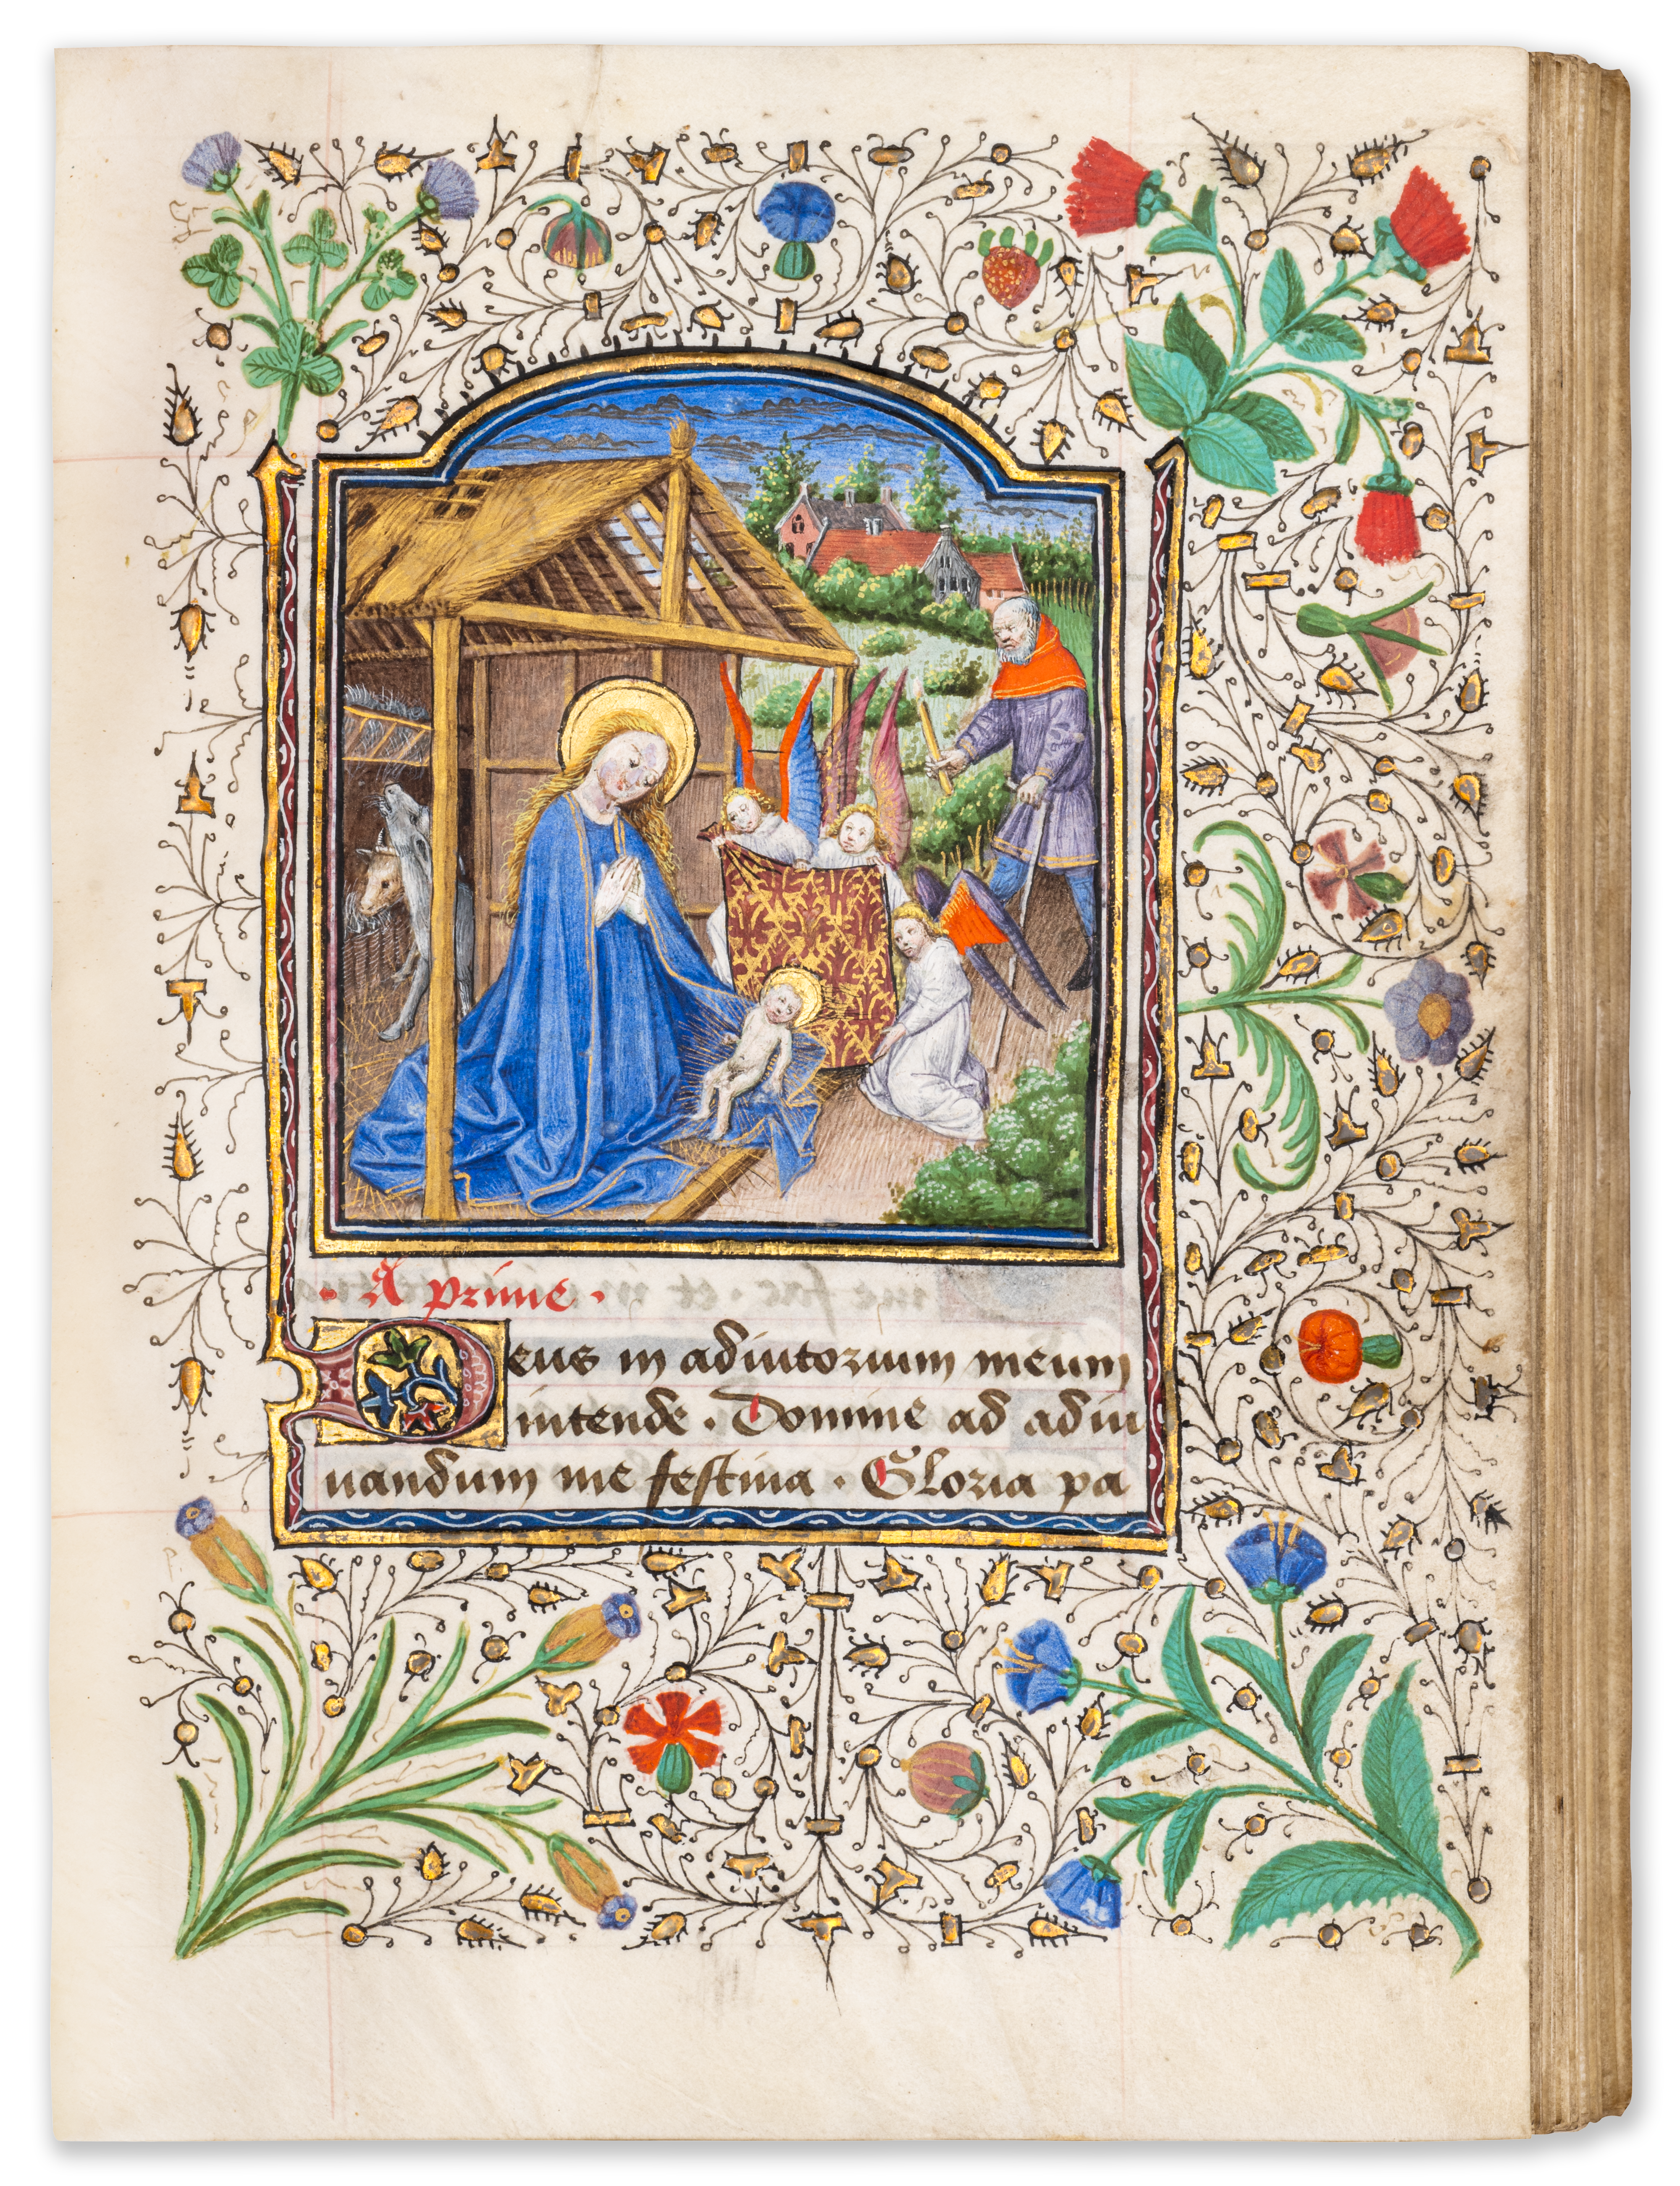 A prime.
Deus in adiutorium meum
intende. Domine ad adiu
uandum me festina. Gloria pa